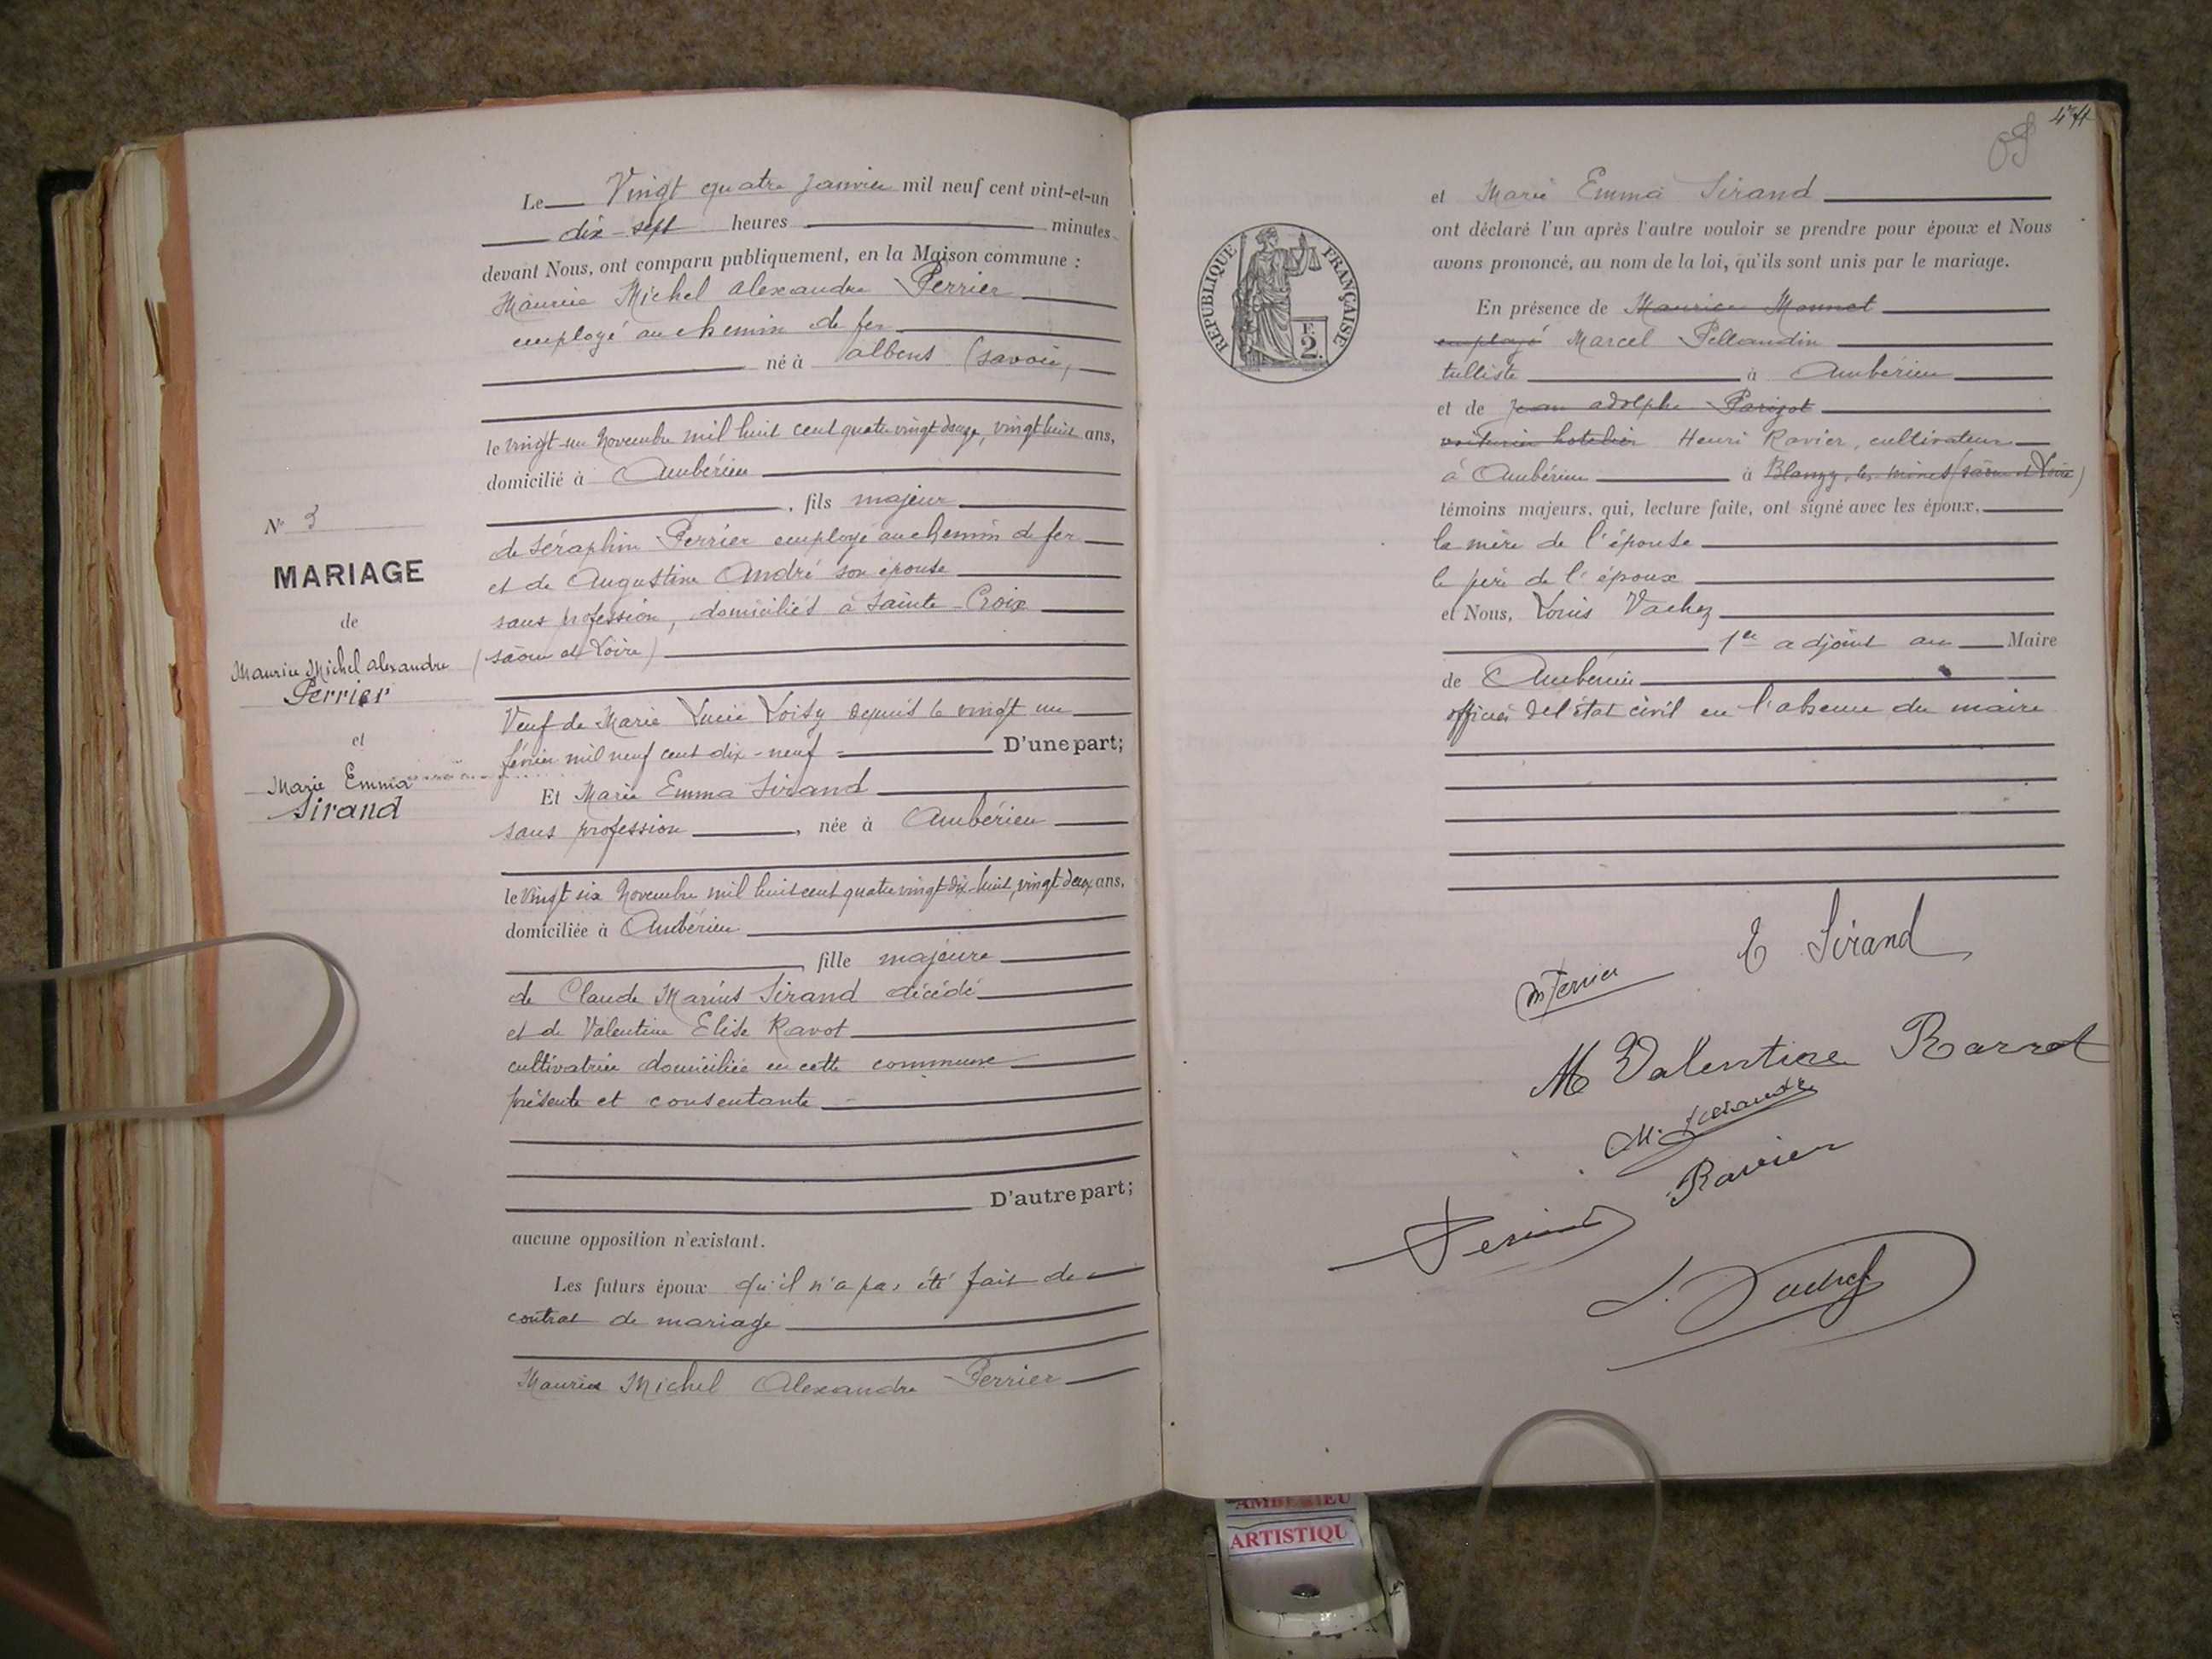 Le Vingt quatre Janvier mil neuf cent vint-et-un
dix-sept heures minutes
devant Nous, ont comparu publiquement, en la Maison commune :
Maurice Michel Alexandre Perrier
employé au chemin de fer
né à Albens (Savoie)
le vingt-un Novembre mil huit cent quatre vingt douze, vingt huit ans,
domicilié à Ambérieu
, fils majeur
de Séraphin Perrier employé au chemin de fer
et de Augustine André son épouse
sans profession, domiciliés à Sainte-Croix
(Saône et Loire)
Veuf de Marie Lucie Loisy depuis le vingt un
février mil neuf cent dix-neuf D'une part;
Et Marie Emma Sirand
sans profession, née à Ambérieu
le vingt six Novembre mil huit cent quatre vingt dix-huit, vingt deux ans,
domiciliée à Ambérieu
, fille majeure
de Claude Marius Sirand décédé
et de Valentine Elise Ravot
cultivatrice domiciliée en cette commune
présente et consentante
D'autre part;
aucune opposition n'existant.
Les futurs époux qu'il n'a pas été fait de
contrat de mariage
Maurice Michel Alexandre Perrier
N° 3
MARIAGE
de
Maurice Michel Alexandre
Perrier
et
Marie Emma
Sirand
471
RÉPUBLIQUE FRANÇAISE
F.
2.
et Marie Emma Sirand
ont déclaré l'un après l'autre vouloir se prendre pour époux et Nous
avons prononcé, au nom de la loi, qu'ils sont unis par le mariage.
En présence de Maurice Monnet
employé Marcel Pellaudin
tulliste à Ambérieu
et de Jean Adolphe Parizot
voiturier hotelier Henri Ravier, cultivateur
à Ambérieu à Blanzy-les-Mines (Saône et Loire)
témoins majeurs, qui, lecture faite, ont signé avec les époux,
la mère de l'épouse
le père de l'époux
et Nous, Louis Vachez
1er adjoint au Maire
de Ambérieu
officier de l'état civil en l'absence du maire
E Sirand
M Perrier
M Valentine Barrot
Ravier
AMBERIEU
ARTISTIQU